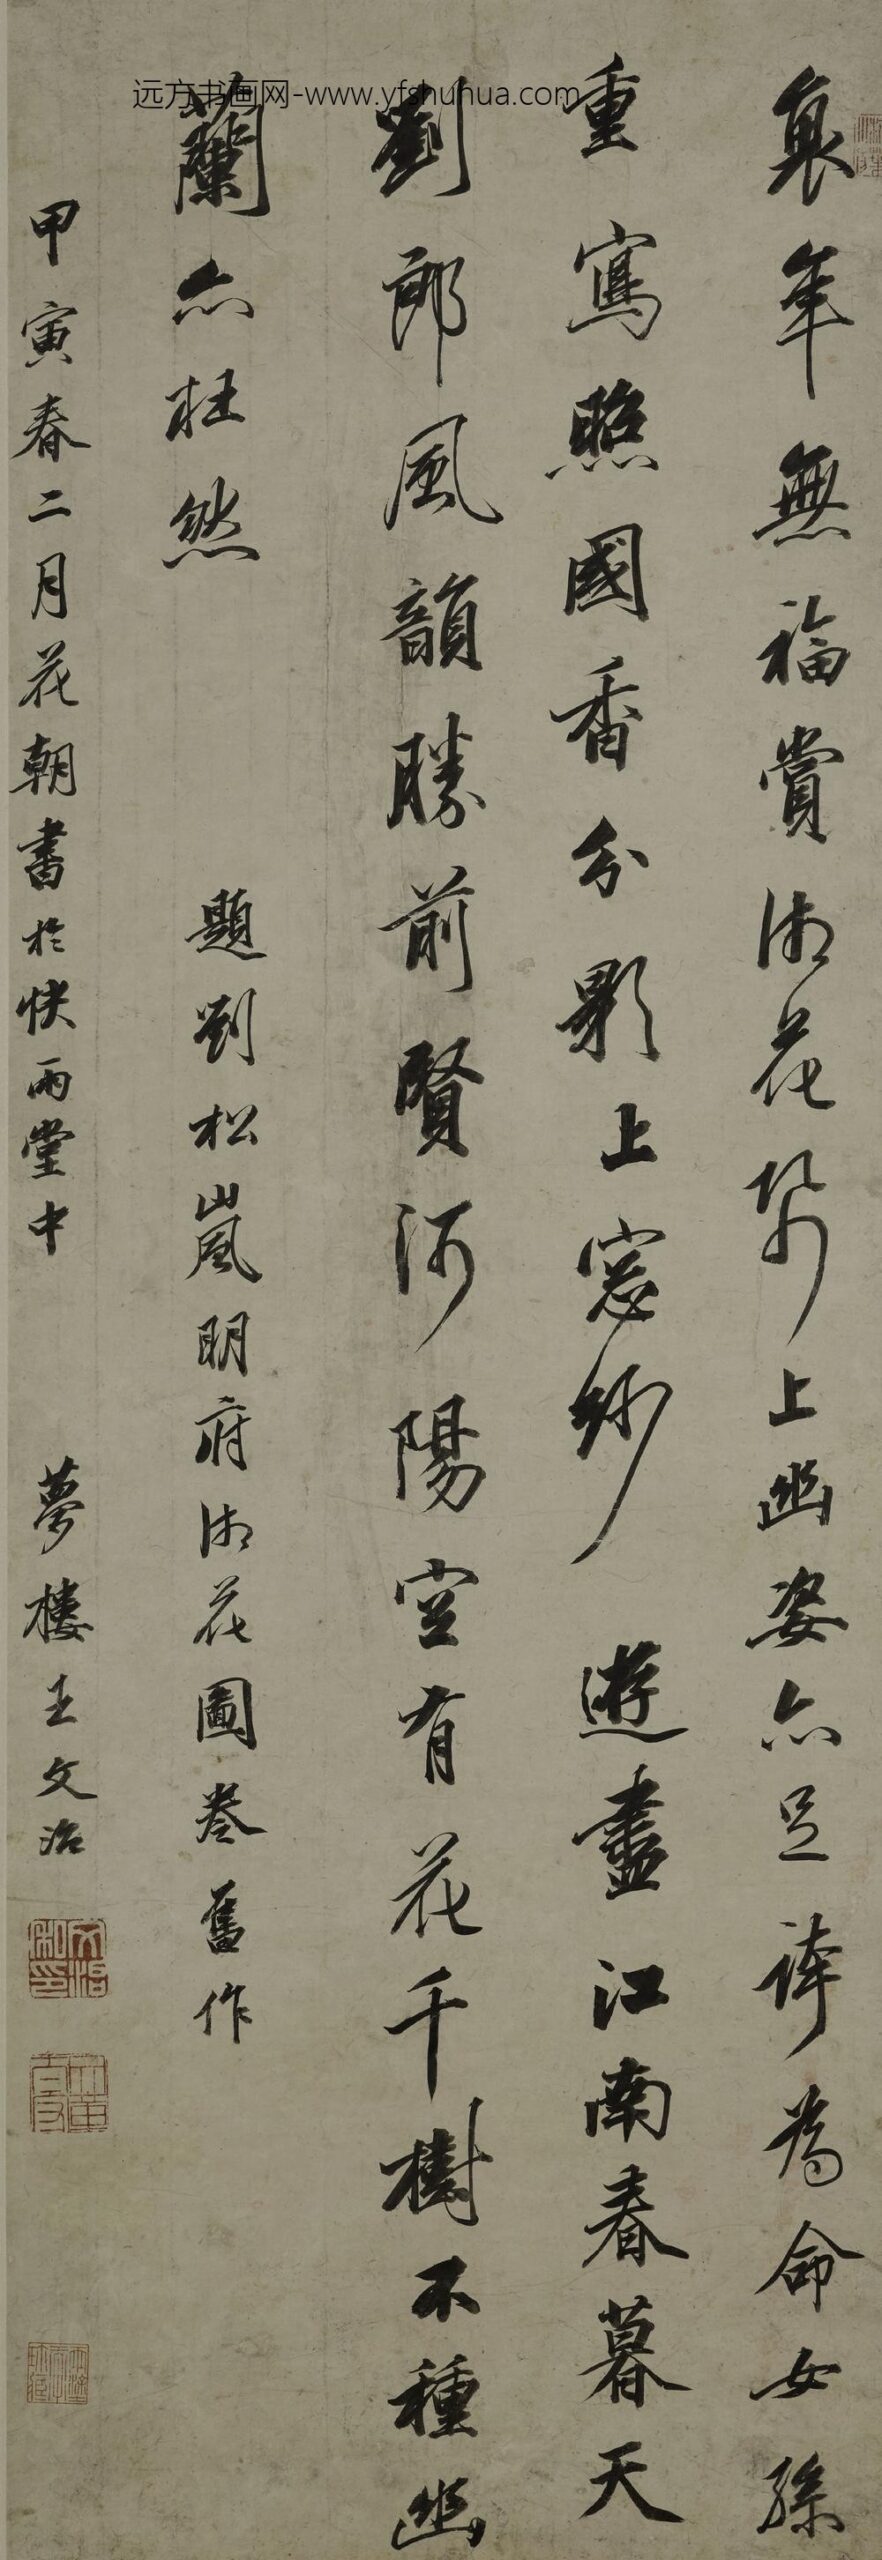 远方书画网-www.yfshuhua.com
衰年無福賞湘花帋上幽姿亦足誇為命女孫
重寫照國香分影上窓紗 遊盡江南春暮天
劉郎風韻勝前賢河陽空有花千樹不種幽
蘭亦枉然 題劉松嵐明府湘花圖卷舊作
甲寅春二月花朝書於快雨堂中 夢樓王文治
文治私印